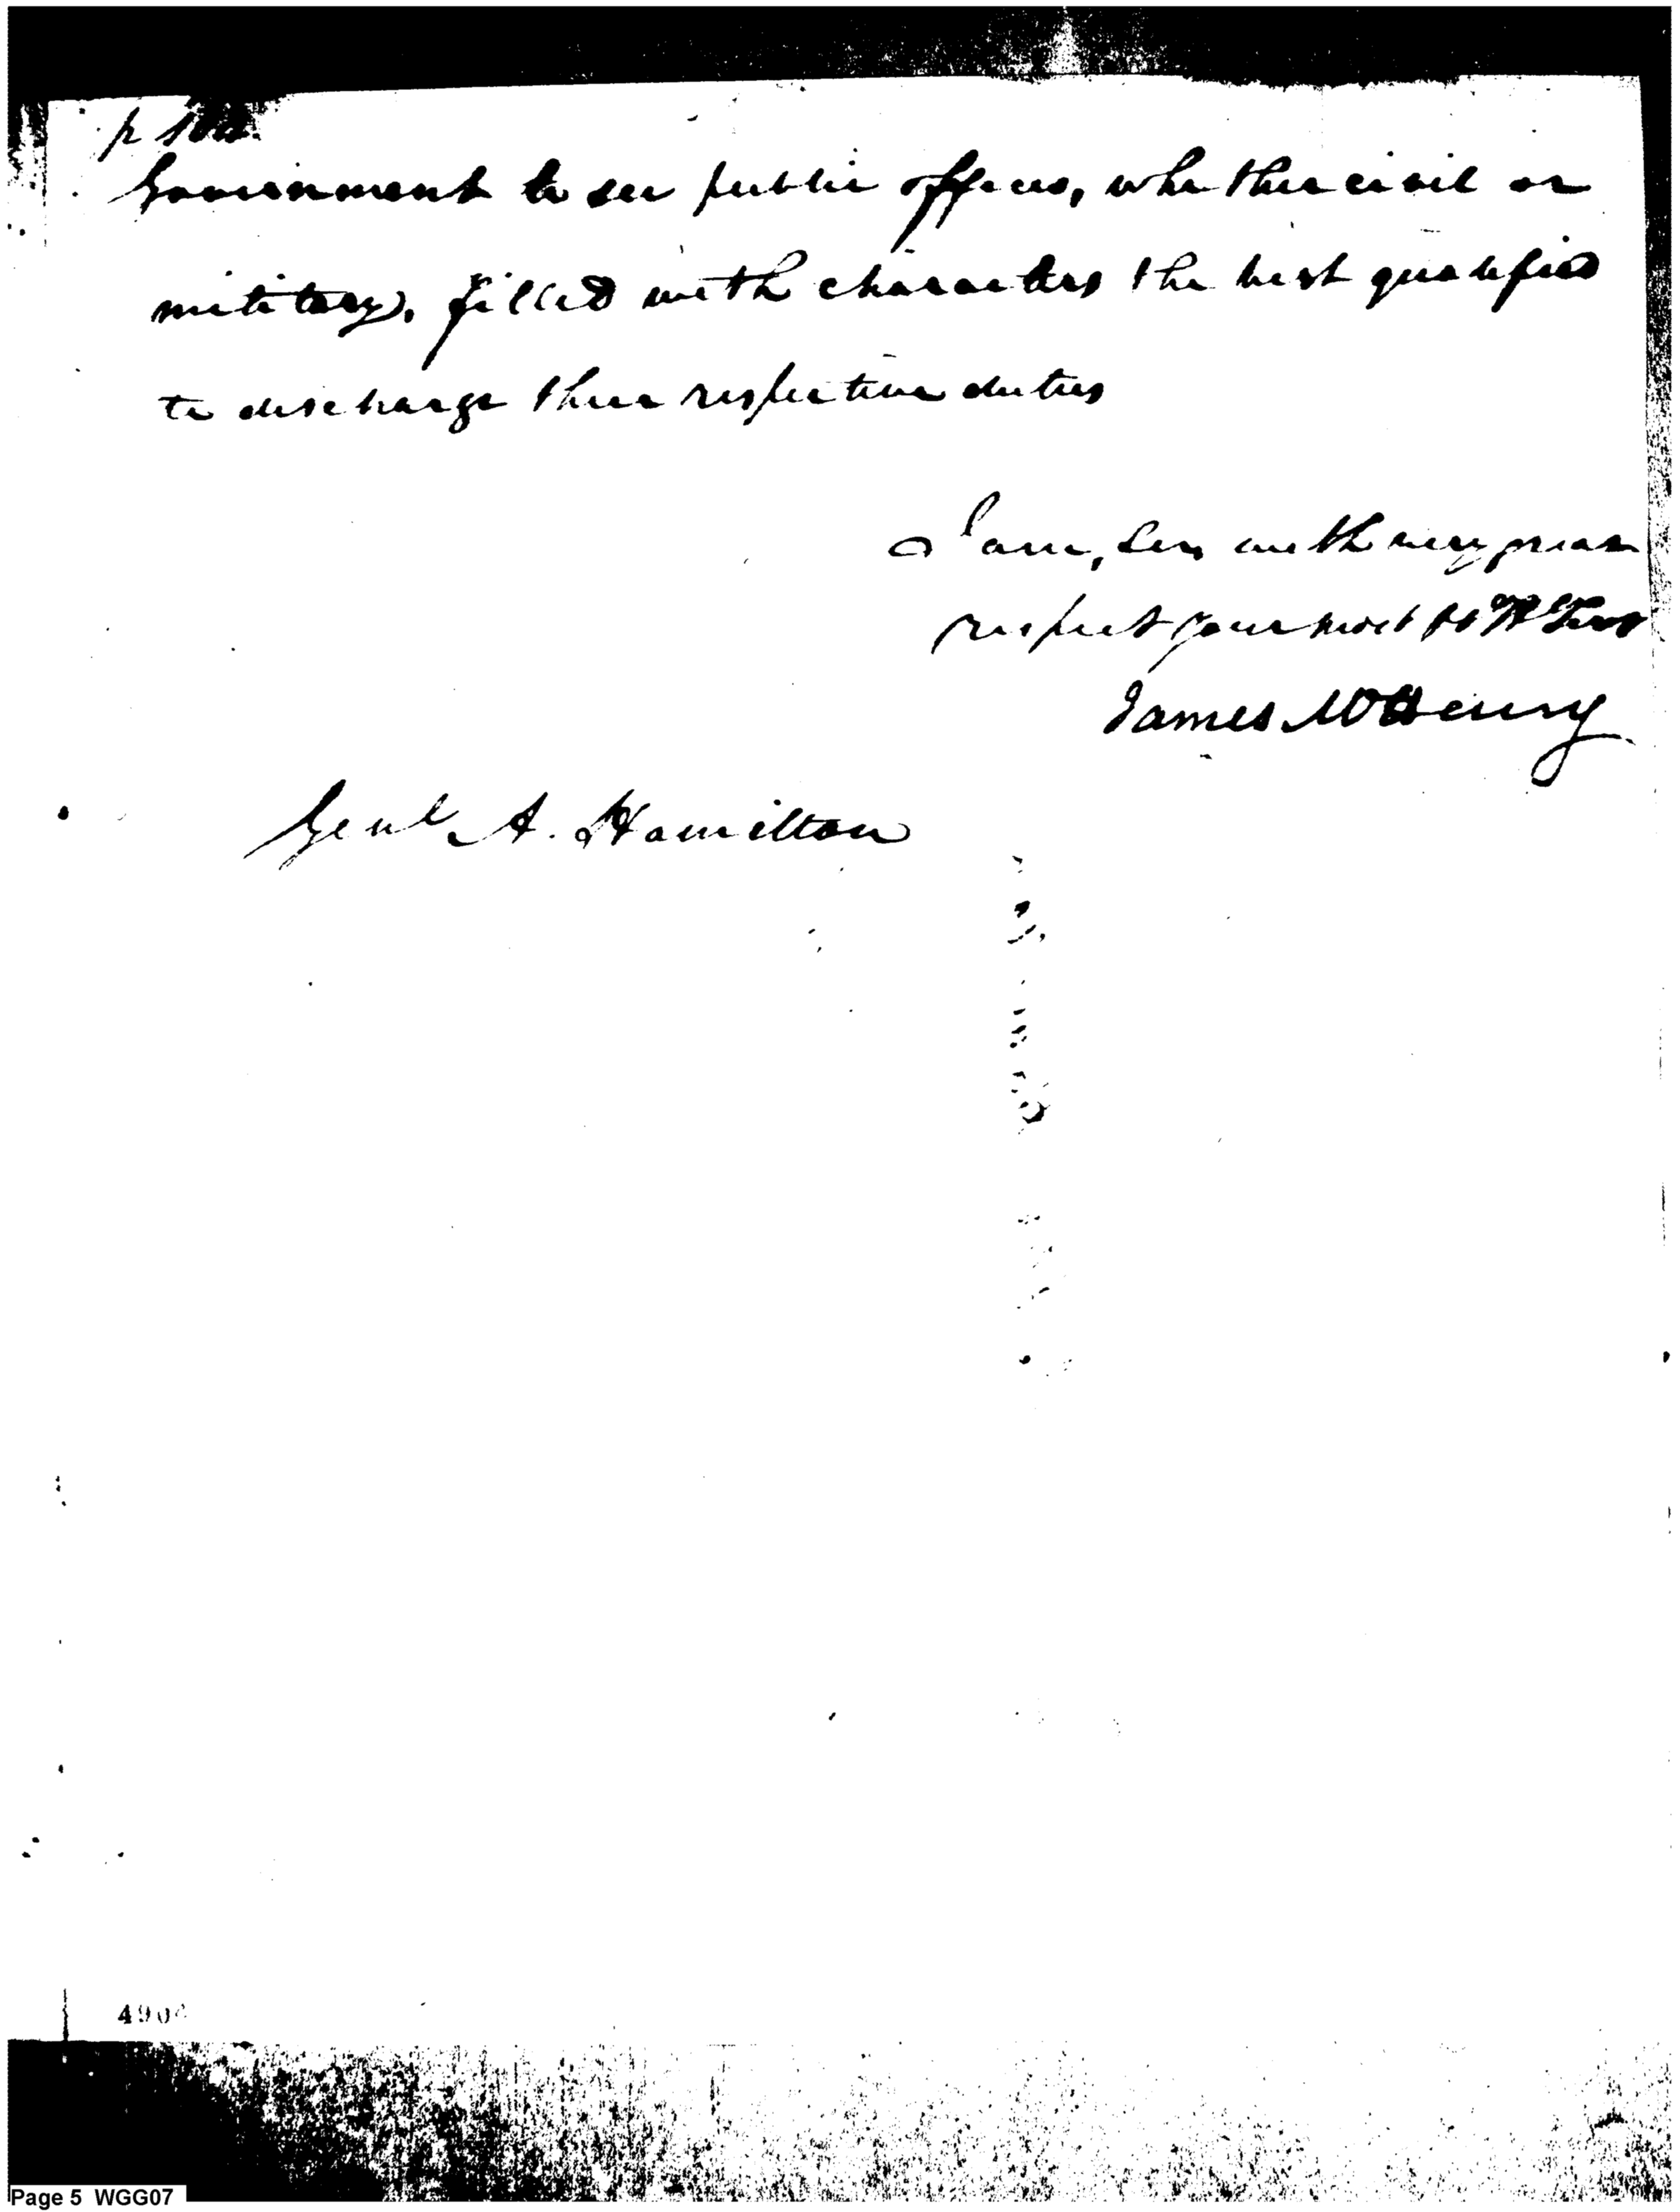 Government to see public offices, whether civil or
military, filled with characters the best qualified
to discharge their respective duties
I am, Sir, with very great
respect your most
James McHenry
Genl. A. Hamilton
Page 5 WGG07